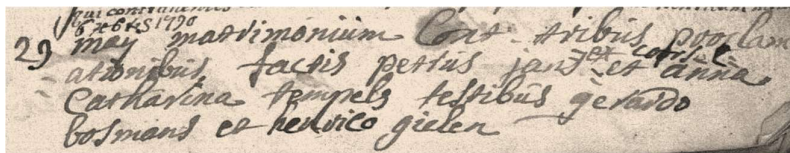 qui contrahentes
6 xbris 1790
29 may matrimonium Cont. tribus proclam
ationibus factis petrus jans et anna
Catharina tempels testibus gerardo
bosmans et henrico gielen